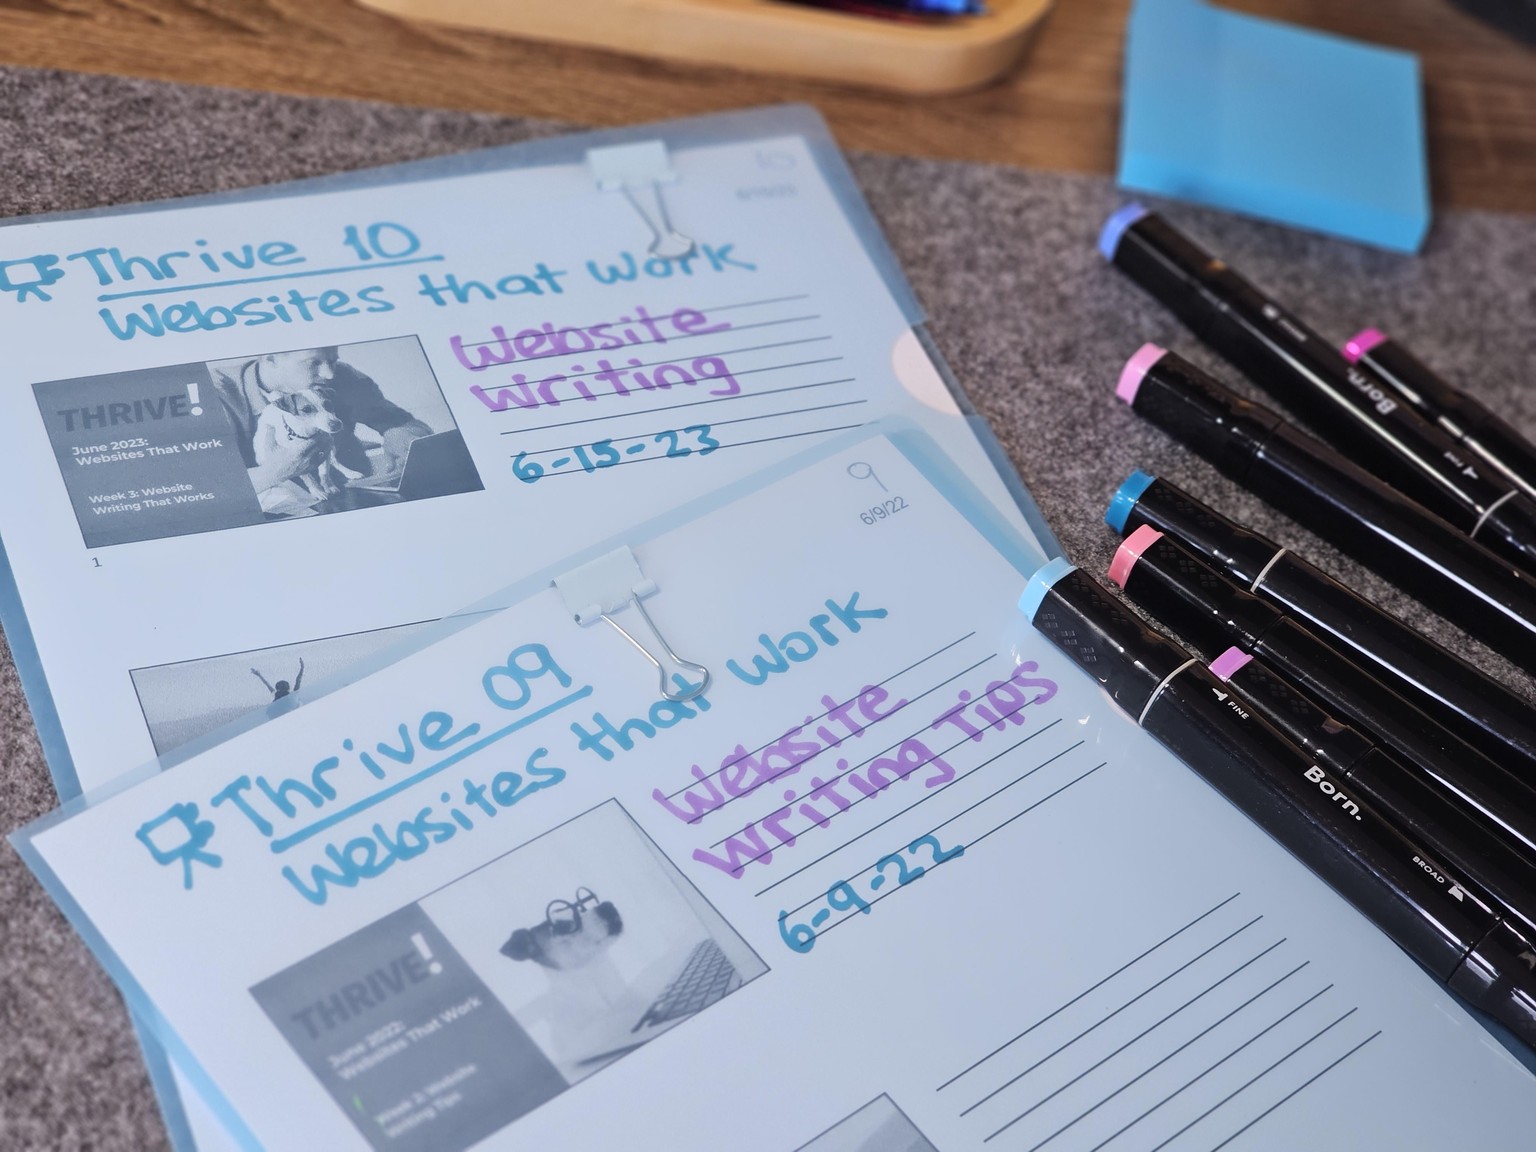 Thrive 10
Websites that work
Website
Writing
6-15-23
THRIVE!
June 2023:
Websites That Work
Week 3: Website
Writing That Works
1
9
6/9/22
Thrive 09
Websites that work
Website
Writing Tips
6-9-22
THRIVE!
June 2022:
Websites That Work
Week 2: Website
Writing Tips
Born.
FINE
Born.
BROAD